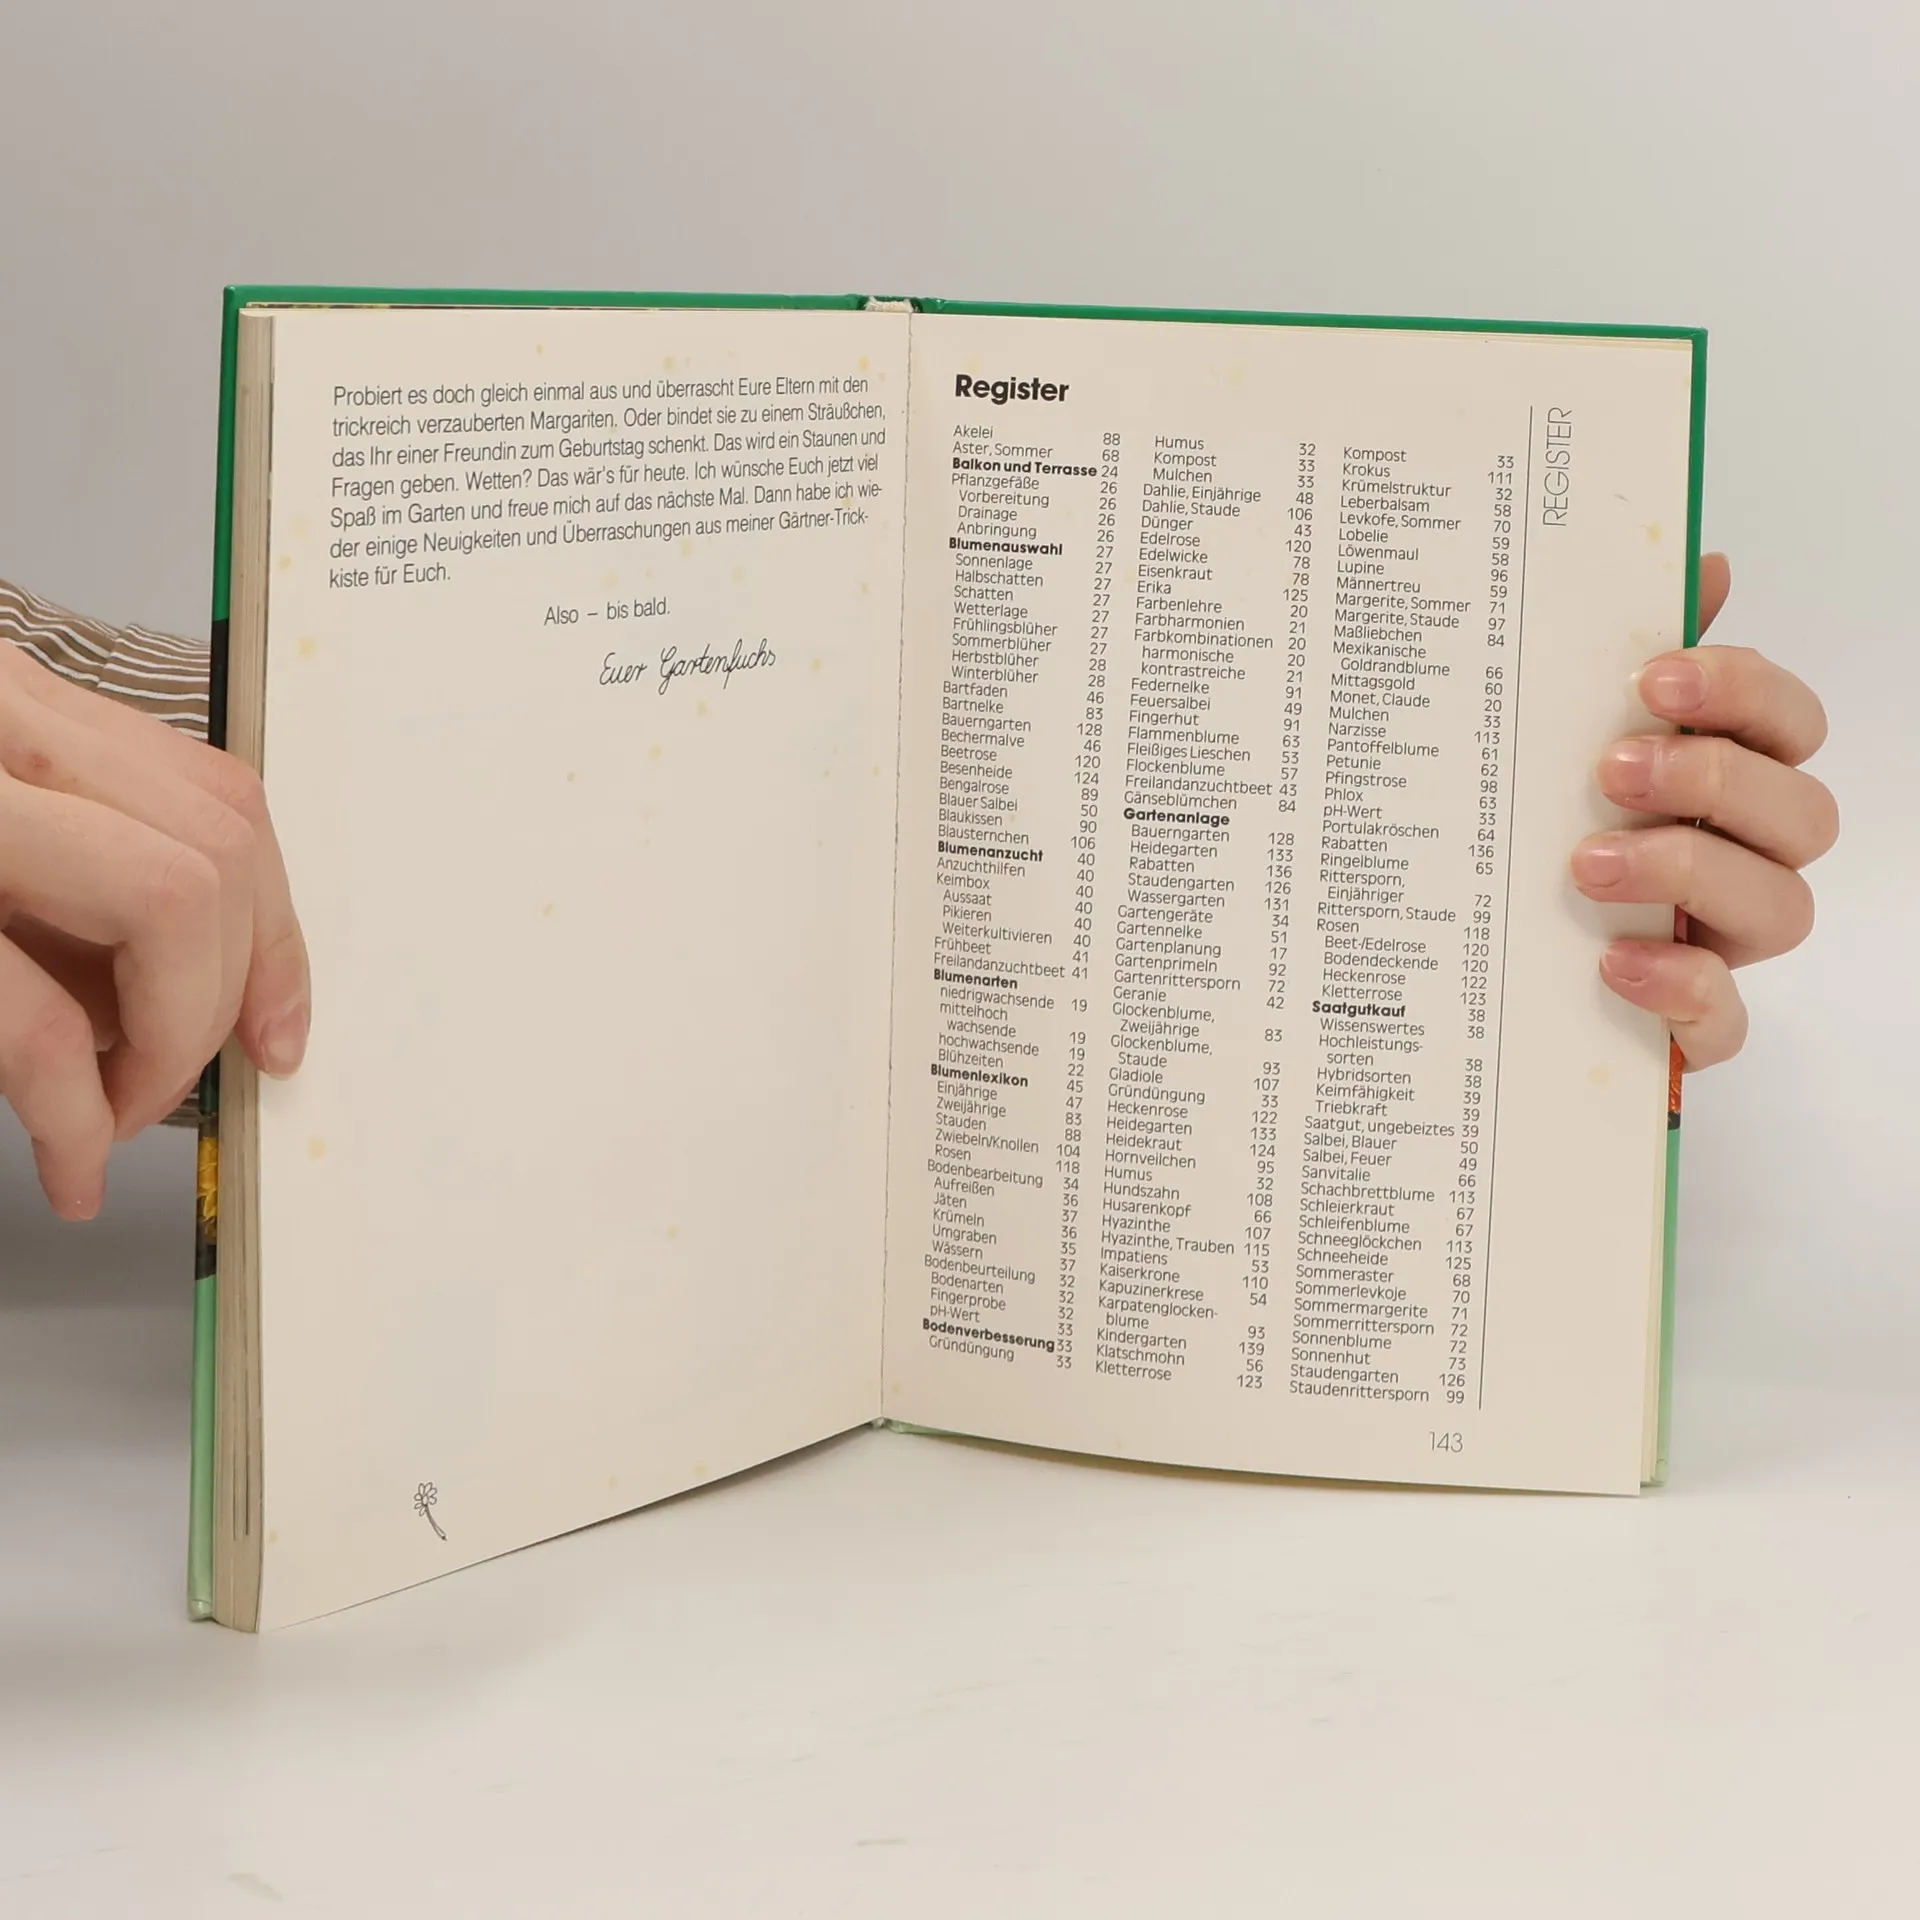 Probiert es doch gleich einmal aus und überrascht Eure Eltern mit den
trickreich verzauberten Margariten. Oder bindet sie zu einem Sträußchen,
das Ihr einer Freundin zum Geburtstag schenkt. Das wird ein Staunen und
Fragen geben. Wetten? Das wär's für heute. Ich wünsche Euch jetzt viel
Spaß im Garten und freue mich auf das nächste Mal. Dann habe ich wie-
der einige Neuigkeiten und Überraschungen aus meiner Gärtner-Trick-
kiste für Euch.
Also – bis bald.
Euer Gartenfuchs
Register
Akelei 88
Aster, Sommer 68
Balkon und Terrasse 24
Pflanzgefäße 26
Vorbereitung 26
Drainage 26
Anbringung 26
Blumenauswahl 27
Sonnenlage 27
Halbschatten 27
Schatten 27
Wetterlage 27
Frühlingsblüher 27
Sommerblüher 27
Herbstblüher 28
Winterblüher 28
Bartfaden 46
Bartnelke 83
Bauerngarten 128
Bechermalve 46
Beetrose 120
Besenheide 124
Bengalrose 89
Blauer Salbei 50
Blaukissen 90
Blausternchen 106
Blumenanzucht 40
Anzuchthilfen 40
Keimbox 40
Aussaat 40
Pikieren 40
Weiterkultivieren 40
Frühbeet 41
Freilandanzuchtbeet 41
Blumenarten
niedrigwachsende 19
mittelhoch
wachsende 19
hochwachsende 19
Blühzeiten 22
Blumenlexikon 45
Einjährige 47
Zweijährige 83
Stauden 88
Zwiebeln/Knollen 104
Rosen 118
Bodenbearbeitung 34
Aufreißen 36
Jäten 37
Krümeln 36
Umgraben 35
Wässern 37
Bodenbeurteilung 32
Bodenarten 32
Fingerprobe 32
pH-Wert 33
Bodenverbesserung 33
Gründüngung 33
Humus 32
Kompost 33
Mulchen 33
Dahlie, Einjährige 48
Dahlie, Staude 106
Dünger 43
Edelrose 120
Edelwicke 78
Eisenkraut 78
Erika 125
Farbenlehre 20
Farbharmonien 21
Farbkombinationen 20
harmonische 20
kontrastreiche 21
Federnelke 91
Feuersalbei 49
Fingerhut 91
Flammenblume 63
Fleißiges Lieschen 53
Flockenblume 57
Freilandanzuchtbeet 43
Gänseblümchen 84
Gartenanlage
Bauerngarten 128
Heidegarten 133
Rabatten 136
Staudengarten 126
Wassergarten 131
Gartengeräte 34
Gartennelke 51
Gartenplanung 17
Gartenprimeln 92
Gartenrittersporn 72
Geranie 42
Glockenblume,
Zweijährige 83
Glockenblume,
Staude 93
Gladiole 107
Gründüngung 33
Heckenrose 122
Heidegarten 133
Heidekraut 124
Hornveilchen 95
Humus 32
Hundszahn 108
Husarenkopf 66
Hyazinthe 107
Hyazinthe, Trauben 115
Impatiens 53
Kaiserkrone 110
Kapuzinerkrese 54
Karpatenglocken-
blume 93
Kindergarten 139
Klatschmohn 56
Kletterrose 123
Kompost 33
Krokus 111
Krümelstruktur 32
Leberbalsam 58
Levkofe, Sommer 70
Lobelie 59
Löwenmaul 58
Lupine 96
Männertreu 59
Margerite, Sommer 71
Margerite, Staude 97
Maßliebchen 84
Mexikanische
Goldrandblume 66
Mittagsgold 60
Monet, Claude 20
Mulchen 33
Narzisse 113
Pantoffelblume 61
Petunie 62
Pfingstrose 98
Phlox 63
pH-Wert 33
Portulakröschen 64
Rabatten 136
Ringelblume 65
Rittersporn,
Einjähriger 72
Rittersporn, Staude 99
Rosen 118
Beet-/Edelrose 120
Bodendeckende 120
Heckenrose 122
Kletterrose 123
Saatgutkauf 38
Wissenswertes 38
Hochleistungs-
sorten 38
Hybridsorten 38
Keimfähigkeit 39
Triebkraft 39
Saatgut, ungebeiztes 39
Salbei, Blauer 50
Salbei, Feuer 49
Sanvitalie 66
Schachbrettblume 113
Schleierkraut 67
Schleifenblume 67
Schneeglöckchen 113
Schneeheide 125
Sommeraster 68
Sommerlevkoje 70
Sommermargerite 71
Sommerrittersporn 72
Sonnenblume 72
Sonnenhut 73
Staudengarten 126
Staudenrittersporn 99
REGISTER
143